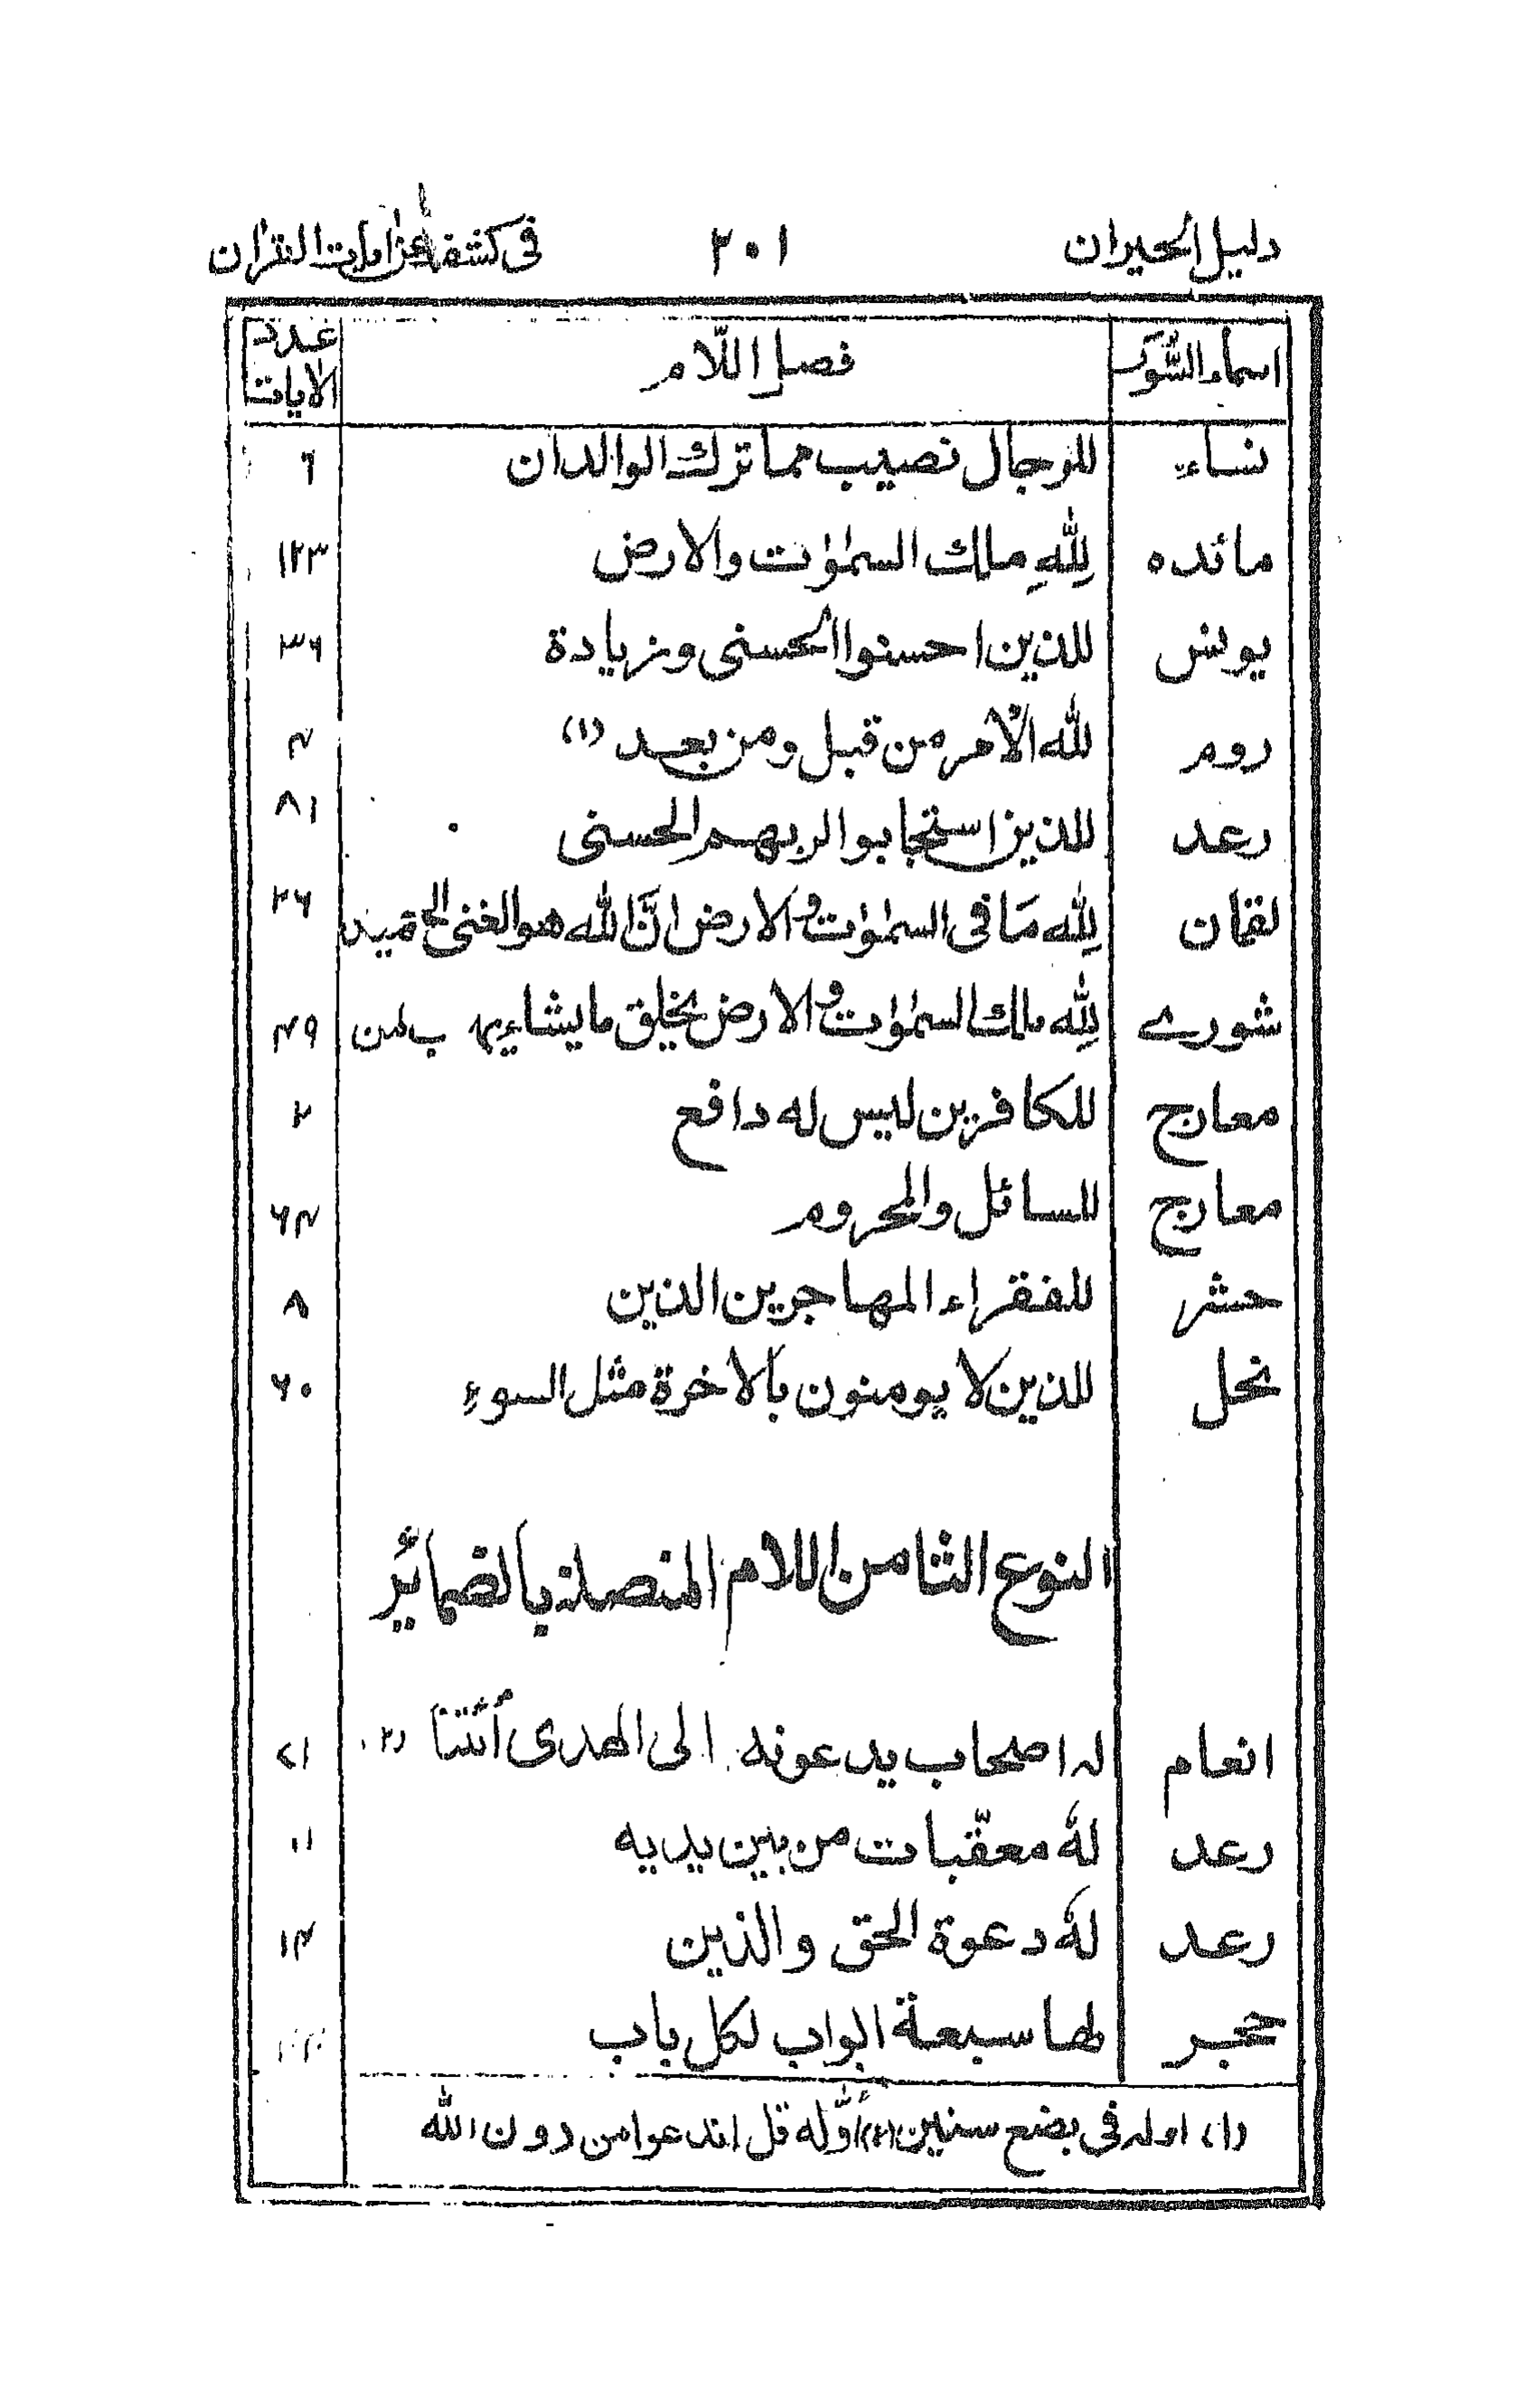 دليل الحيران ٢٠١ فى كشف عن آيات القرآن
اسماء السُّوَر فصل اللّام عدد الايات
نساء للرجال نصيب مما ترك الوالدان ٦
مائده لِلّٰهِ ملك السمٰوٰت والارض ١٢٣
يونس للذين احسنوا الحسنى وزيادة ٣٦
روم لله الأمر من قبل ومن بعد (١) ٤
رعد للذين استجابوا لربهم الحسنى ٨١
لقمان لِلّٰه مَا فى السمٰوٰت و الارض انَّ الله هو الغنى الحميد ٢٦
شورے لِلّٰه ملك السمٰوٰت و الارض يخلق ما يشاء يهب لمن ٤٩
معارج للكافرين ليس له دافع ٢
معارج للسائل والمحروم ٦٤
حشر للفقراء المهاجرين الذين ٨
نحل للذين لا يومنون بالاخرة مثل السوء ٦٠
النوع الثامن اللام المتصلة بالضمائر
انعام له اصحاب يدعونه الى الهدى أئتنا (٢) ٧١
رعد لهٗ معقّبات من بين يديه ١١
رعد لهٗ دعوة الحق والذين ١٤
حجر لها سبعة ابواب لكل باب
(١) اوله فى بضع سنين (٢) أوّله قل اندعوا من دون الله